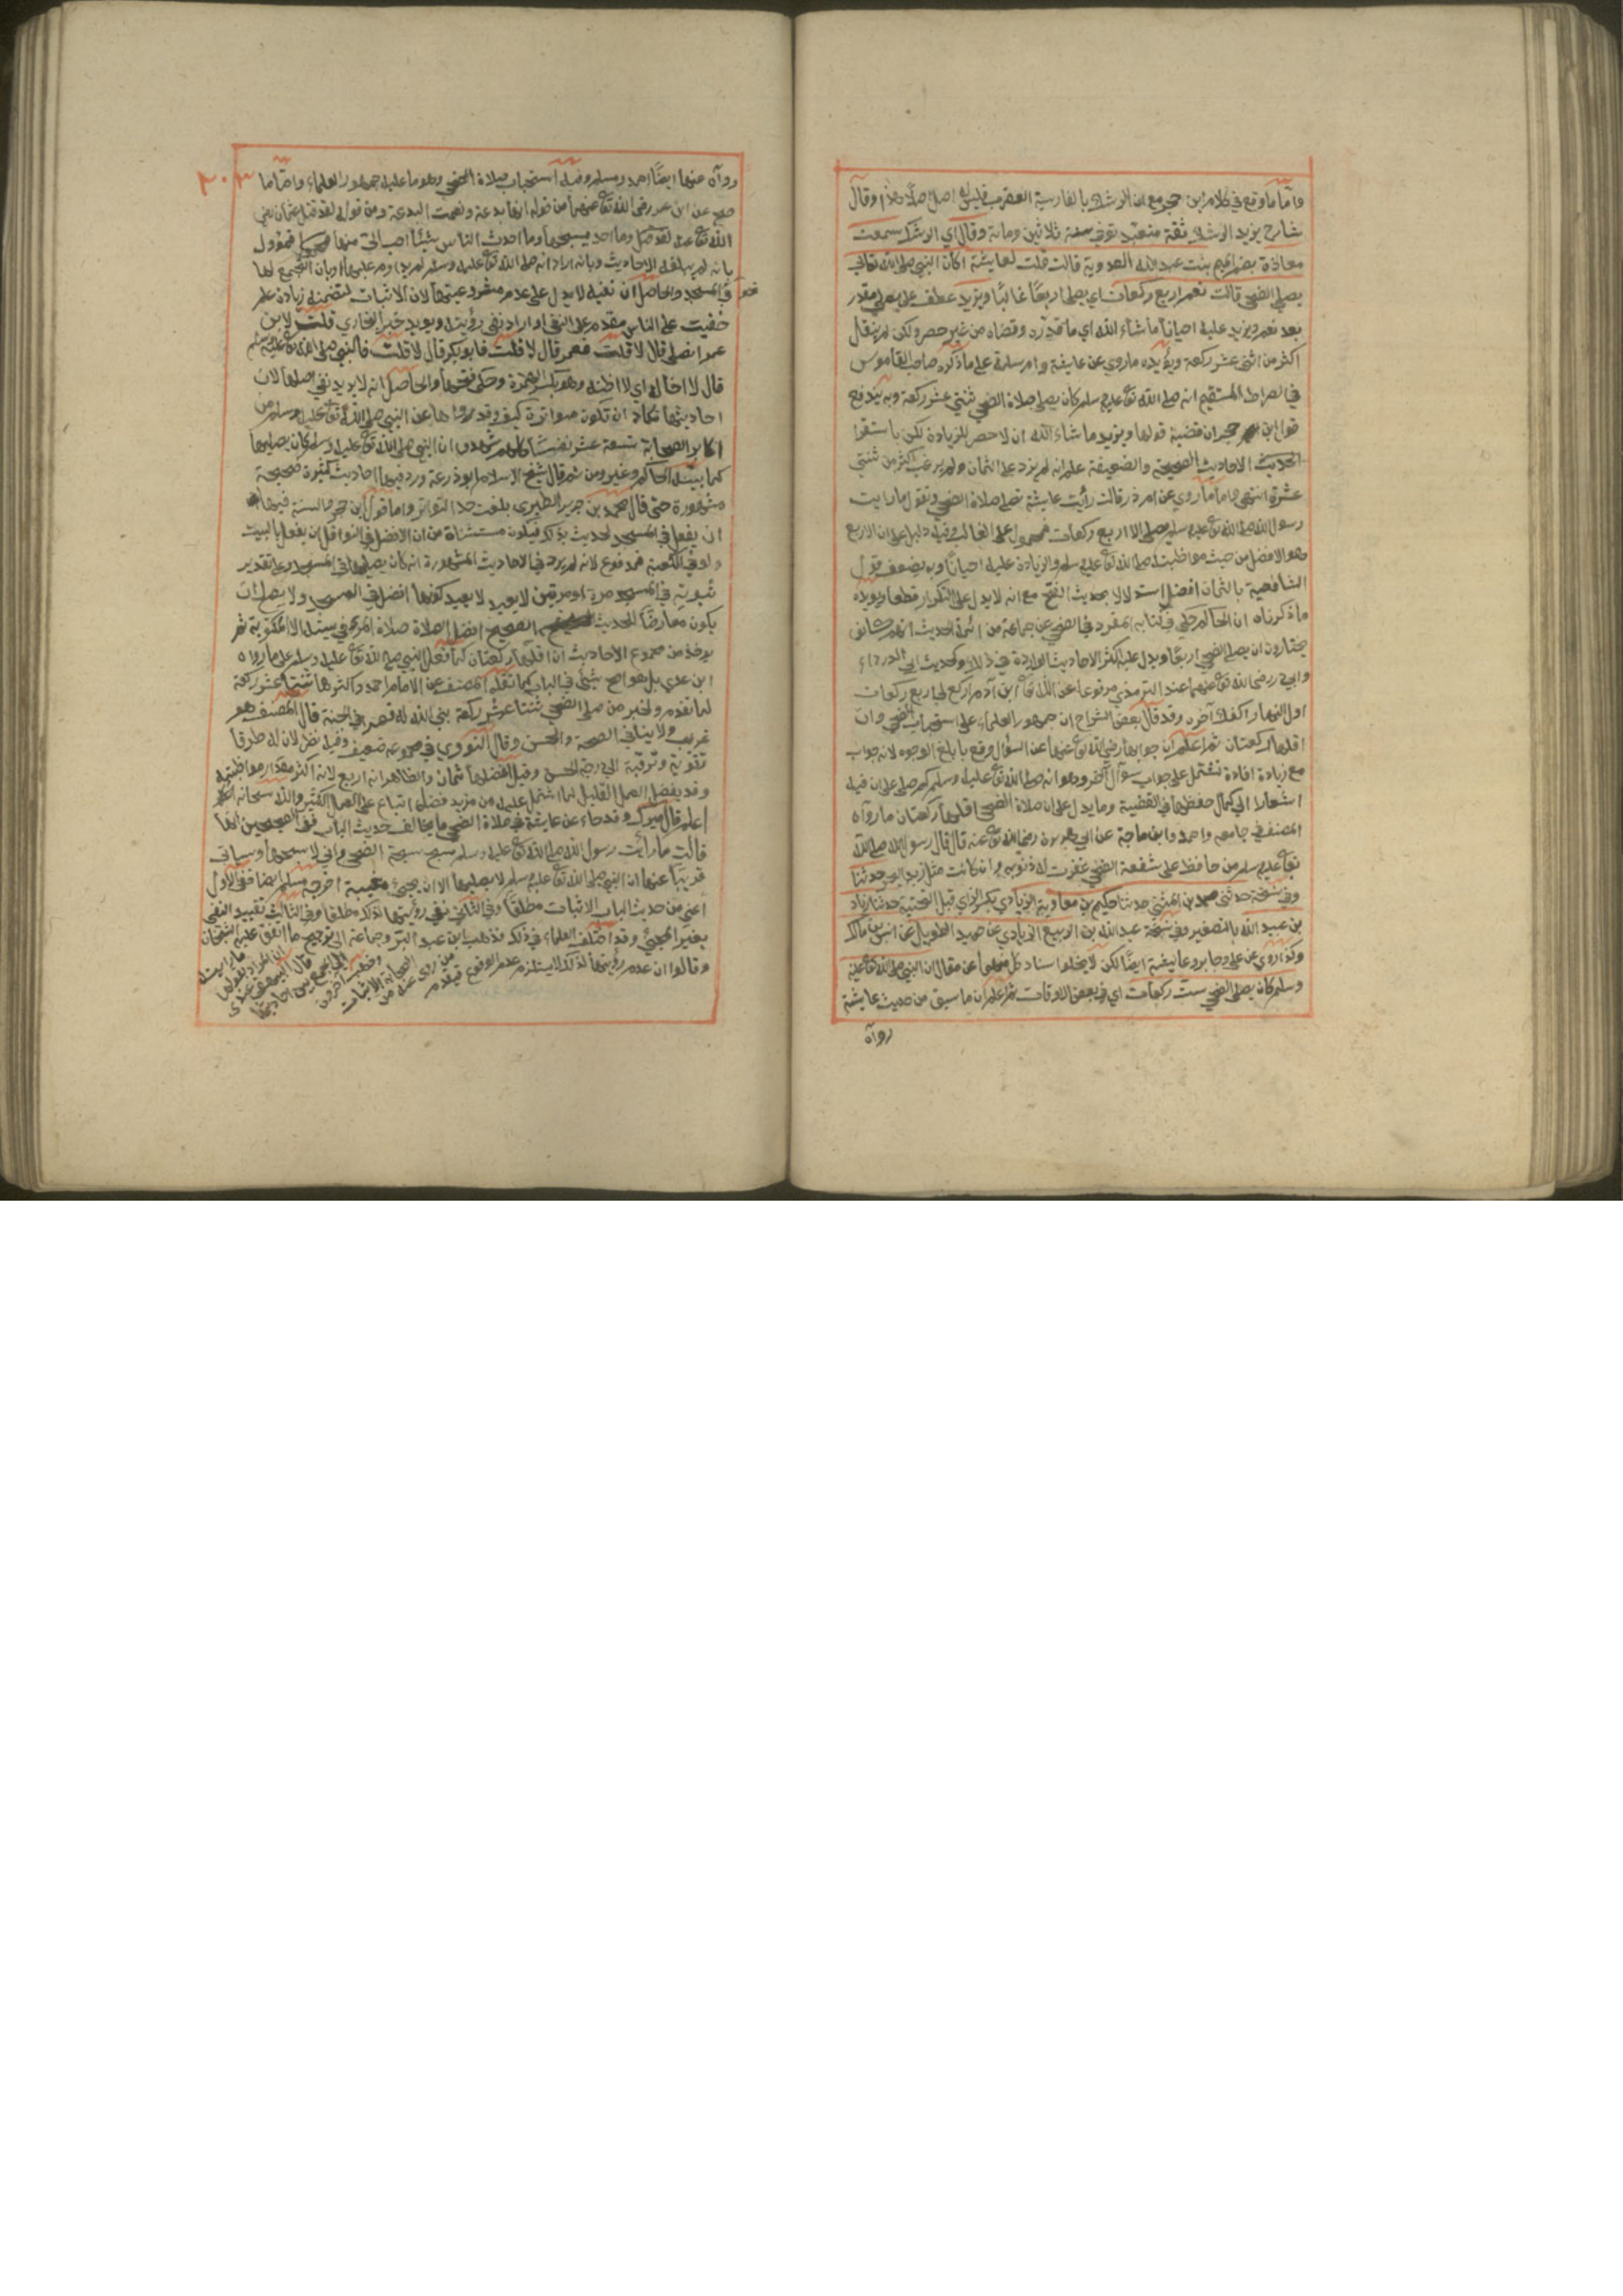 واما ما وقع في كلام ابن حجر مع ان الرشك بالفارسية العقرب فليس له اصل اصلا هذا وقال
شارح يزيد الرشك ثقة متعبد توفي سنة ثلاثين ومائة وقال اي الرشك سمعت
معاذة بضم الميم بنت عبد الله العدوية قالت قلت لعايشة اكان النبي صلى الله تعالى
يصلي الضحى قالت نعم اربع ركعات اي يصلي اربعا غالبا ويزيد عطف على يصلي مقدر
بعد نعم ويزيد عليه احيانا ما شاء الله اي ما قدره وقضاه من غير حصر ولكن لم ينقل
اكثر من اثنى عشر ركعة ويؤيده ما روي عن عايشة وام سلمة على ما ذكره صاحب القاموس
في الصراط المستقيم انه صلى الله تع عليه وسلم كان يصلي صلاة الضحى ثنتي عشر ركعة وبه يندفع
قول ابن حجر ان قضية قولها ويزيد ما شاء الله ان لا حصر للزيادة لكن باستقرا
الحديث الاحاديث الصحيحة والضعيفة علم انه لم يزد على الثمان ولم يرغب اكثر من ثنتي
عشرة انتهى واما ما روي عن ام ذر قالت رأيت عايشة تصلي صلاة الضحى وتقول ما رايت
رسول الله صلى الله تع عليه وسلم يصلي الا اربع ركعات فمحمول على الغالب وفيه دليل على ان الاربع
هو الافضل من حيث مواظبته صلى الله تع عليه وسلم والزيادة عليه احيانا وبه يضعف قول
الشافعية بالثمان افضل استدلالا بحديث الفتح مع انه لا يدل على التكرار قطعا ويؤيده
ما ذكرناه ان الحاكم حكى في كتابه المفرد في الضحى عن جماعة من ائمة الحديث انهم كانوا
يختارون ان يصلي الضحى اربعا ويدل عليه اكثر الاحاديث الواردة في ذلك وكحديث ابي الدرداء
وابي ذر رضى الله تع عنهما عند الترمذي مرفوعا عن الله تع ابن آدم اركع لي اربع ركعات
اول النهار اكفك آخره وقد قال بعض الشراح ان جمهور العلماء على استحباب الضحى وان
اقلها ركعتان ثم اعلم ان جوابها رضي الله تع عنها عن السؤال وقع بابلغ الوجوه لانه جواب
مع زيادة افادة تشتمل على جواب سؤال آخر وهو انه صلى الله تع عليه وسلم كم صلى على ان فيه
اشعارا الى كمال حفظها في القضية ومما يدل على ان صلاة الضحى اقلها ركعتان ما رواه
المصنف في جامعه واحمد وابن ماجة عن ابي هريرة رضي الله تع عنه قال قال رسول الله صلى الله
تع عليه وسلم من حافظ على شفعة الضحى غفرت له ذنوبه وان كانت مثل زبد البحر حدثنا
وفي نسخة حدثني محمد بن المثنى حدثنا حكيم بن معاوية الزيادي بكسر الزاي قبل التحتية حدثنا زياد
بن عبيد الله بالتصغير وفي نسخة عبد الله بن الربيع الزيادي عن حميد الطويل عن انس بن مالك
وكذا روي عن علي وجابر وعايشة ايضا لكن لا يخلوا اسناد كل منها عن مقال ان النبي صلى الله تع عليه
وسلم كان يصلي الضحى ست ركعات اي في بعض الاوقات ثم اعلم ان ما سبق من حديث عايشة
رواه
٢٠٣
رواه عنها ايضا احمد ومسلم وفيه استحباب صلاة الضحى وهو ما عليه جمهور العلماء واما ما
صح عن ابن عمر رضى الله تع عنهما من قوله انها بدعة ونعمت البدعة ومن قوله لقد قتل عثمان رضى
الله تع عنه وما احد يسبحها وما احدث الناس شيئا احب الي منها فمؤول
بانه لم يبلغه الاحاديث وبانه اراد انه صلى الله تع عليه وسلم لم يداوم عليها او بان التجمع لها
في المسجد والحاصل ان نفيه لا يدل على عدم مشروعيتها لان الاثبات لتضمنه زيادة علم
خفيت على الناس مقدم على النفي او اراد نفي رؤيته ويؤيد خبر البخاري قلت لابن
عمر اتصلي قال لا قلت فعمر قال لا قلت فابو بكر قال لا قلت فالنبي صلى الله تع عليه وسلم
قال لا اخاله اي لا اظنه وهو بكسر الهمزة وحكى فتحها والحاصل انه لا يريد نفي اصلها لان
احاديثها تكاد ان تكون متواترة كيف وقد رواها عن النبي صلى الله تع عليه وسلم من
اكابر الصحابة تسعة عشر نفسا كلهم شهدوا ان النبي صلى الله تع عليه وسلم كان يصليها
كما بينه الحاكم وغيره ومن ثم قال شيخ الاسلام ابو زرعة ورد فيها احاديث كثيرة صحيحة
مشهورة حتى قال محمد بن جرير الطبري بلغت حد التواتر واما قول ابن حجر السنة فيها
ان يفعل في المسجد لحديث بذلك فيكون مستثناة من ان الافضل في النوافل ان يفعل بالبيت
ولو في الكعبة فمدفوع لانه لم يرد في الاحاديث المشهورة انه كان يصليها في المسجد وعلى تقدير
ثبوته في المسجد مرة او مرتين لا يفيد كونها افضل في المسجد ولا يصلح ان
يكون معارضا لحديث الصحيح افضل الصلاة صلاة المرء في بيته الا المكتوبة ثم
يوخذ من مجموع الاحاديث ان اقلها ركعتان كما فعله النبي صلى الله تع عليه وسلم على ما رواه
ابن عدي بل هو اصح شيئ في الباب كما نقله المصنف عن الامام احمد واكثرها ثنتا عشر ركعة
لما تقدم ولخبر من صلى الضحى ثنتا عشر ركعة بنى الله له قصرا في الجنة قال المصنف هو
غريب ولا ينافي الصحة والحسن وقال النووي في مجموعه ضعيف وفيه نظر لان له طرقا
تقويه وترقيه الى درجة الحسن وقيل افضلها ثمان والظاهر انه اربع لانه اكثر مقدار مواظبته
وقد يفضل العمل القليل لما اشتمل عليه من مزيد فضل اتباع على العمل الكثير والله سبحانه
اعلم قال ميرك وقد جاء عن عايشة في صلاة الضحى ما يخالف حديث الباب ففي الصحيحين انها
قالت ما رأيت رسول الله صلى الله تع عليه وسلم سبح سبحة الضحى واني لاسبحها وسياتي
قريبا عنها ان النبي صلى الله تع عليه وسلم لا يصليها الا ان يجيئ مغيبه اخرجه مسلم ايضا ففي الاول
اعني من حديث الباب الاثبات مطلقا وفي الثاني نفي رؤيتها لذلك مطلقا وفي الثالث تقييد النفي
بغير المجيئ وقد اختلف العلماء في ذلك فذهب ابن عبد البر وجماعة الى ترجيح ما اتفق عليه الشيخان
وقالوا ان عدم رؤيتها لذلك لا يستلزم عدم الوقوع فيقدم
من روى عنه من
الصحابة الاثبات
وذهب آخرون
الى الجمع بين احاديثها
قال البيهقي عندي
ان المراد بقولها
ما رايته